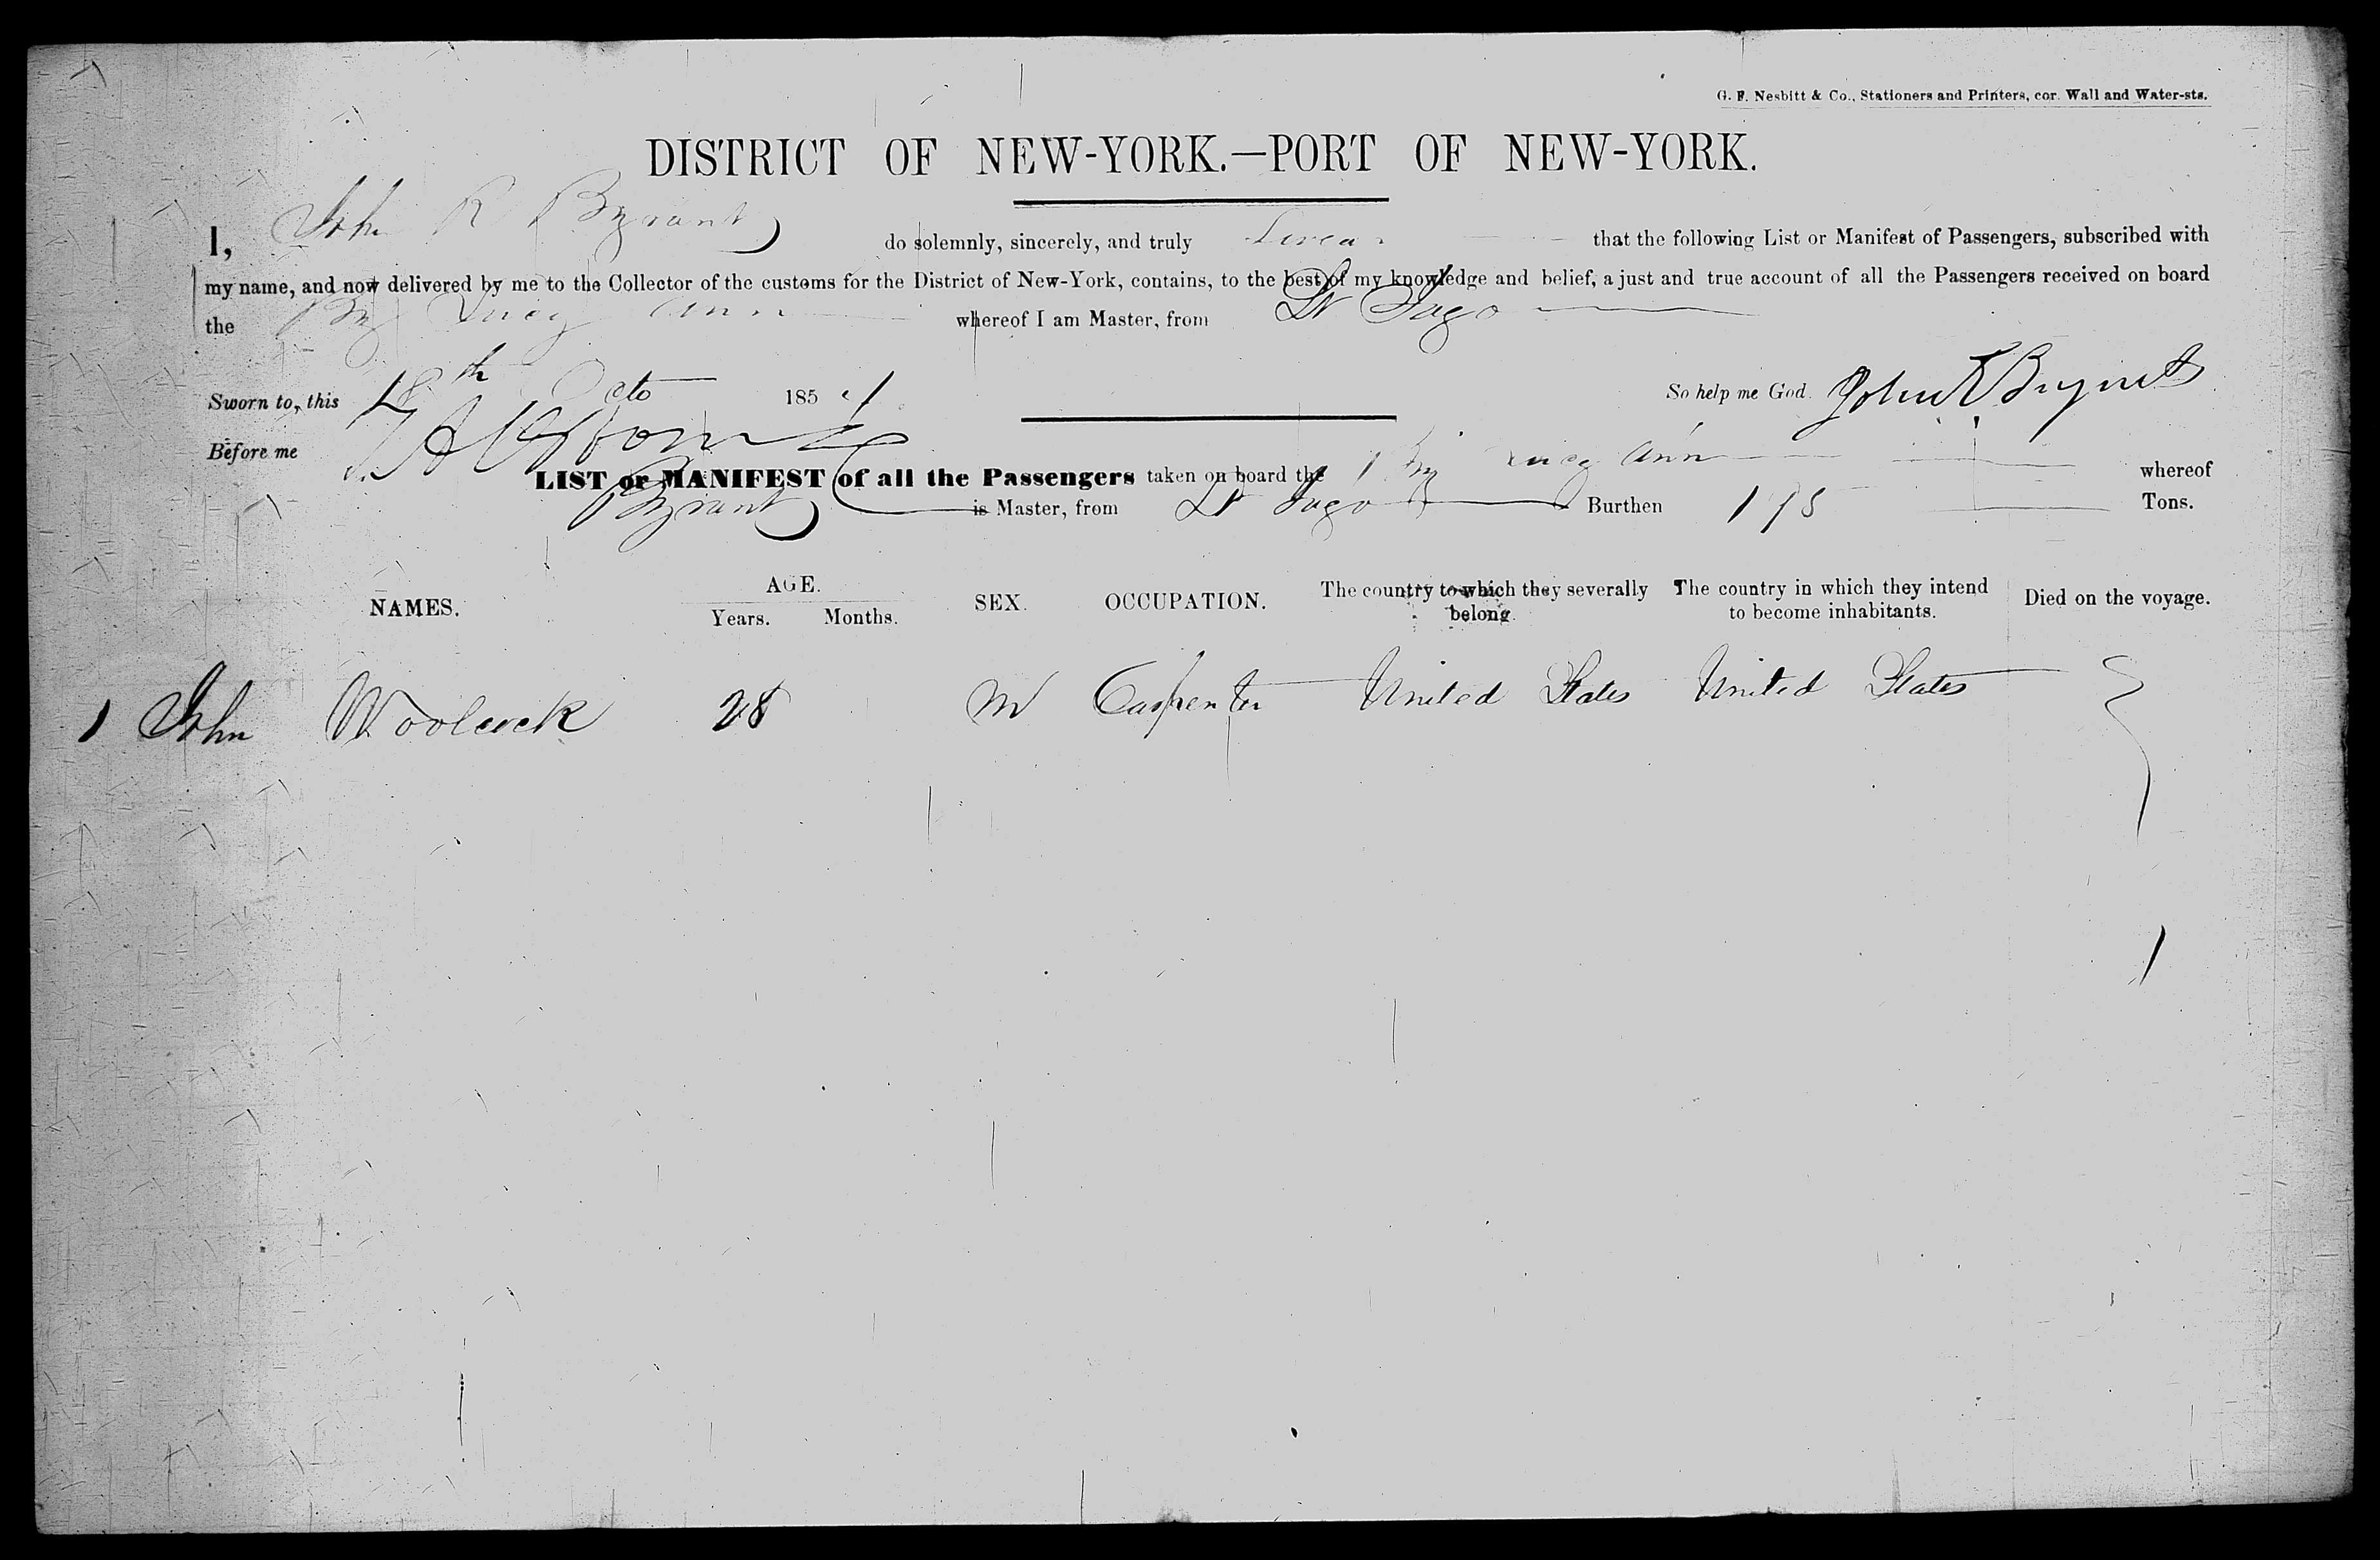 G. F. Nesbitt & Co., Stationers and Printers, cor. Wall and Water-sts.
DISTRICT OF NEW-YORK.—PORT OF NEW-YORK.
I, John R Bryant do solemnly, sincerely, and truly Swear that the following List or Manifest of Passengers, subscribed with
my name, and now delivered by me to the Collector of the customs for the District of New-York, contains, to the best of my knowledge and belief, a just and true account of all the Passengers received on board
the Brig Lucy Ann whereof I am Master, from St Jago
Sworn to, this 18th Octo 185 So help me God. John R Bryant
Before me
LIST or MANIFEST of all the Passengers taken on board the Brig Lucy Ann whereof
Bryant is Master, from St Jago Burthen 175 Tons.
NAMES. AGE. Years. Months. SEX. OCCUPATION. The country to which they severally belong. The country in which they intend to become inhabitants. Died on the voyage.
1 John Woolcock 28 M Carpenter United States United States
1